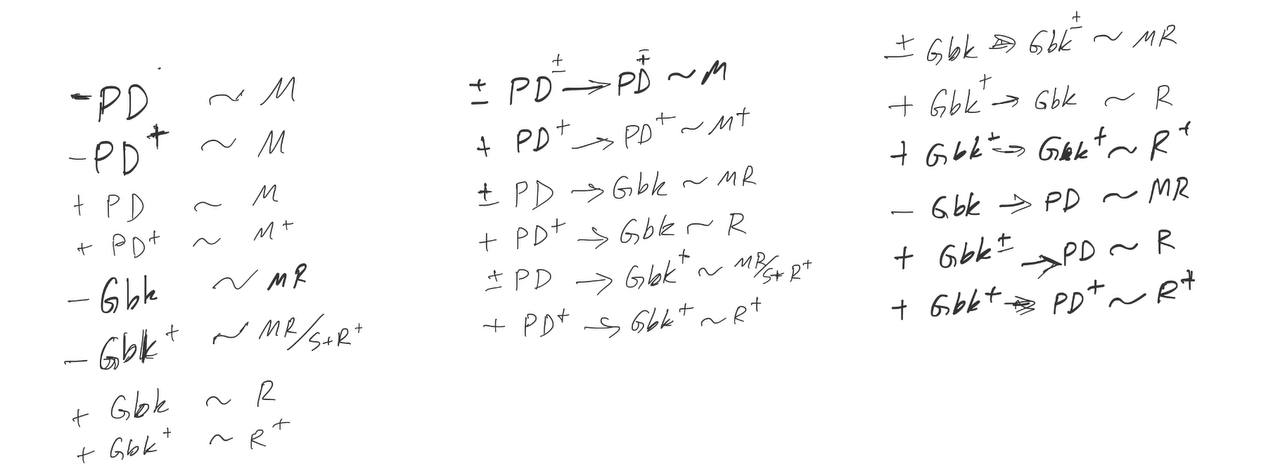 -PD ~ M
-PD⁺ ~ M
+ PD ~ M
+ PD⁺ ~ M⁺
-Gbk ~ MR
- Gbk⁺ ~ MR/S+R⁺
+ Gbk ~ R
+ Gbk⁺ ~ R⁺
± PD^± → PD^∓ ~ M
+ PD⁺ → PD⁺ ~ M⁺
± PD → Gbk ~ MR
+ PD⁺ → Gbk ~ R
± PD → Gbk⁺ ~ MR/S+R⁺
+ PD⁺ → Gbk⁺ ~ R⁺
± Gbk → Gbk^± ~ MR
+ Gbk⁺ → Gbk ~ R
+ Gbk⁺ → Gbk⁺ ~ R⁺
- Gbk → PD ~ MR
+ Gbk^± → PD ~ R
+ Gbk⁺ → PD⁺ ~ R⁺